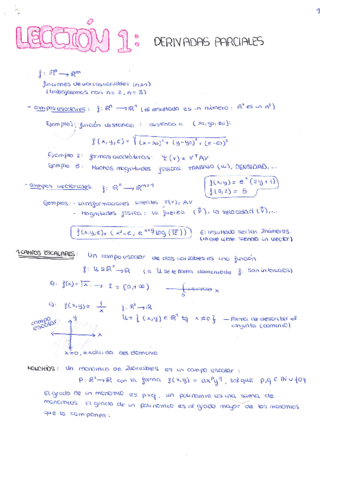 1
LECCIÓN 1: DERIVADAS PARCIALES
f: ℝⁿ → ℝᵐ
funciones de varias variables (n>1)
(trabajaremos con n=2, n=3)
- campos escalares: f: ℝⁿ → ℝ (el resultado es un número: ℝ¹ es un nº)
Ejemplo 1: función distancia: distancia a (x₀, y₀, z₀)
f(x,y,z) = √((x-x₀)² + (y-y₀)² + (z-z₀)²)
Ejemplo 2: formas cuadráticas: Ψ(v) = vᵀAv
Ejemplo 3: Muchas magnitudes físicas: TRABAJO (w), DENSIDAD, ...
- campos vectoriales: f: ℝⁿ → ℝᵐ
f(x,y) = eˣ (2y+1)
Ejemplos: - transformaciones lineales T(v), AV
- Magnitudes físicas: la fuerza (F), la velocidad (v), ...
1. CAMPOS ESCALARES: Un campo escalar de dos variables es una función
f: U⊆ℝ² → ℝ
f(x,y) =
f: ℝ² → ℝ
U = { (x,y) ∈ ℝ² tq x≠0 } → forma de describir el
campo
escalar
conjunto (dominio)
x=0, excluida del dominio
MONOMIOS: Un monomio de 2 variables es un campo escalar:
p: ℝ² → ℝ con la forma f(x,y) = axᵖy^q, tal que p,q ∈ ℕ∪{0}
El grado de un monomio es p+q, un polinomio es una suma de
monomios. El grado de un polinomio es el grado mayor de los monomios
que lo componen.